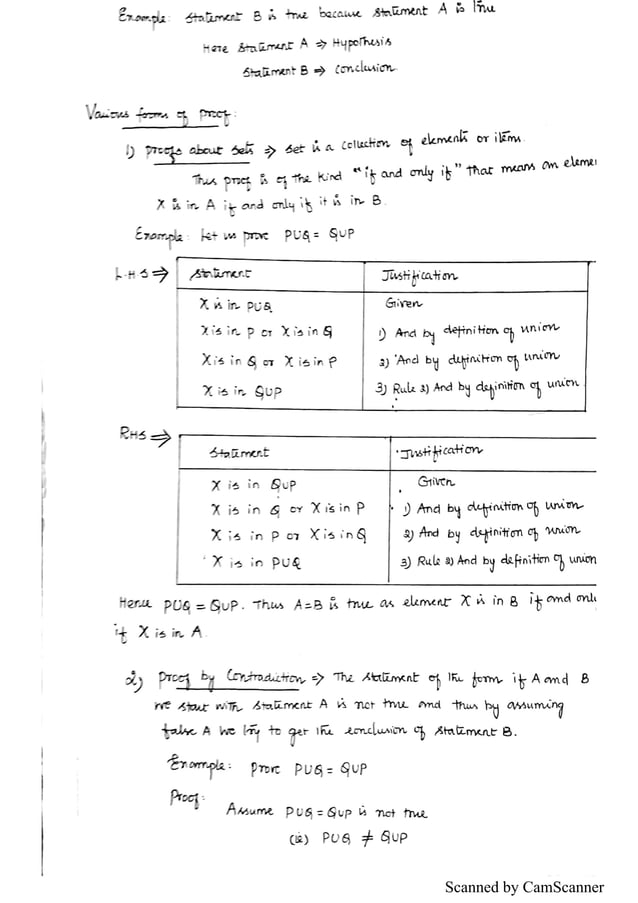 Example: Statement B is true because Statement A is true
Here Statement A ⇒ Hypothesis
Statement B ⇒ Conclusion
Various forms of proof:
1) Proofs about sets ⇒ Set is a collection of elements or items.
Thus proof is of the kind "if and only if" that means an elemen
X is in A if and only if it is in B.
Example: Let us prove PUQ = QUP
L.H.S ⇒ Statement Justification
X is in PUQ Given
X is in P or X is in Q 1) And by definition of union
X is in Q or X is in P 2) And by definition of union
X is in QUP 3) Rule 2) And by definition of union
RHS ⇒ Statement Justification
X is in QUP Given
X is in Q or X is in P 1) And by definition of union
X is in P or X is in Q 2) And by definition of union
X is in PUQ 3) Rule 2) And by definition of union
Hence PUQ = QUP. Thus A=B is true as element X is in B if and only
if X is in A.
2) Proof by Contradiction ⇒ The statement of the form if A and B
we start with statement A is not true and thus by assuming
false A we try to get the conclusion of statement B.
Example: Prove PUQ = QUP
Proof:
Assume PUQ = QUP is not true
(ie) PUQ ≠ QUP
Scanned by CamScanner